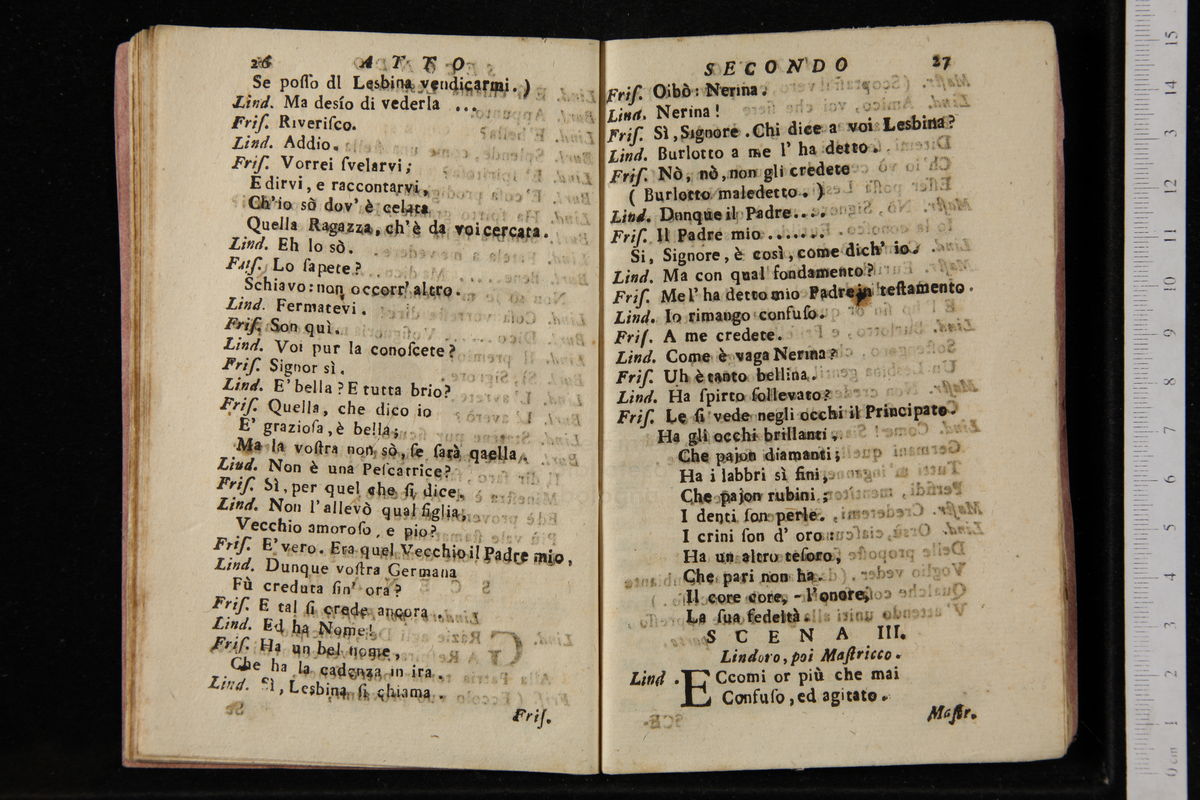 26 ATTO
Se poſſo dl Lesbina vendicarmi. )
Lind. Ma desío di vederla ...
Friſ. Riveriſco.
Lind. Addio.
Friſ. Vorrei ſvelarvi;
E dirvi, e raccontarvi,
Ch'io sò dov' è celata
Quella Ragazza, ch'è da voi cercata.
Lind. Eh lo sò.
Friſ. Lo ſapete?
Schiavo: non occorr' altro.
Lind. Fermatevi.
Friſ. Son quì.
Lind. Voi pur la conoſcete?
Friſ. Signor sì.
Lind. E' bella? E tutta brio?
Friſ. Quella, che dico io
E' grazioſa, è bella;
Ma la voſtra non sò, ſe ſarà quella.
Lind. Non è una Peſcatrice?
Friſ. Sì, per quel che ſi dice.
Lind. Non l'allevò qual figlia,
Vecchio amoroſo, e pio?
Friſ. E' vero. Era quel Vecchio il Padre mio,
Lind. Dunque voſtra Germana
Fù creduta ſin' ora?
Friſ. E tal ſi crede ancora.
Lind. Ed ha Nome!
Friſ. Ha un bel nome,
Che ha la cadenza in ira.
Lind. Sì, Lesbina ſi chiama.
Friſ.
SECONDO 27
Friſ. Oibò: Nerina.
Lind. Nerina!
Friſ. Sì, Signore. Chi dice a voi Lesbina?
Lind. Burlotto a me l' ha detto.
Friſ. Nò, nò, non gli credete
( Burlotto maledetto. )
Lind. Dunque il Padre....
Friſ. Il Padre mio .......
Si, Signore, è così, come dich' io.
Lind. Ma con qual fondamento?
Friſ. Me l' ha detto mio Padre in teſtamento.
Lind. Io rimango confuſo.
Friſ. A me credete.
Lind. Come è vaga Nerina?
Friſ. Uh è tanto bellina.
Lind. Ha ſpirto ſollevato?
Friſ. Le ſi vede negli occhi il Principato
Ha gli occhi brillanti,
Che pajon diamanti;
Ha i labbri sì fini,
Che pajon rubini;
I denti ſon perle.
I crini ſon d' oro:
Ha un altro teſoro,
Che pari non ha.
Il core core, - l'onore,
La ſua fedeltà.
SCENA III.
Lindoro, poi Maſtricco.
Lind. ECcomi or più che mai
Confuſo, ed agitato.
Maſtr.